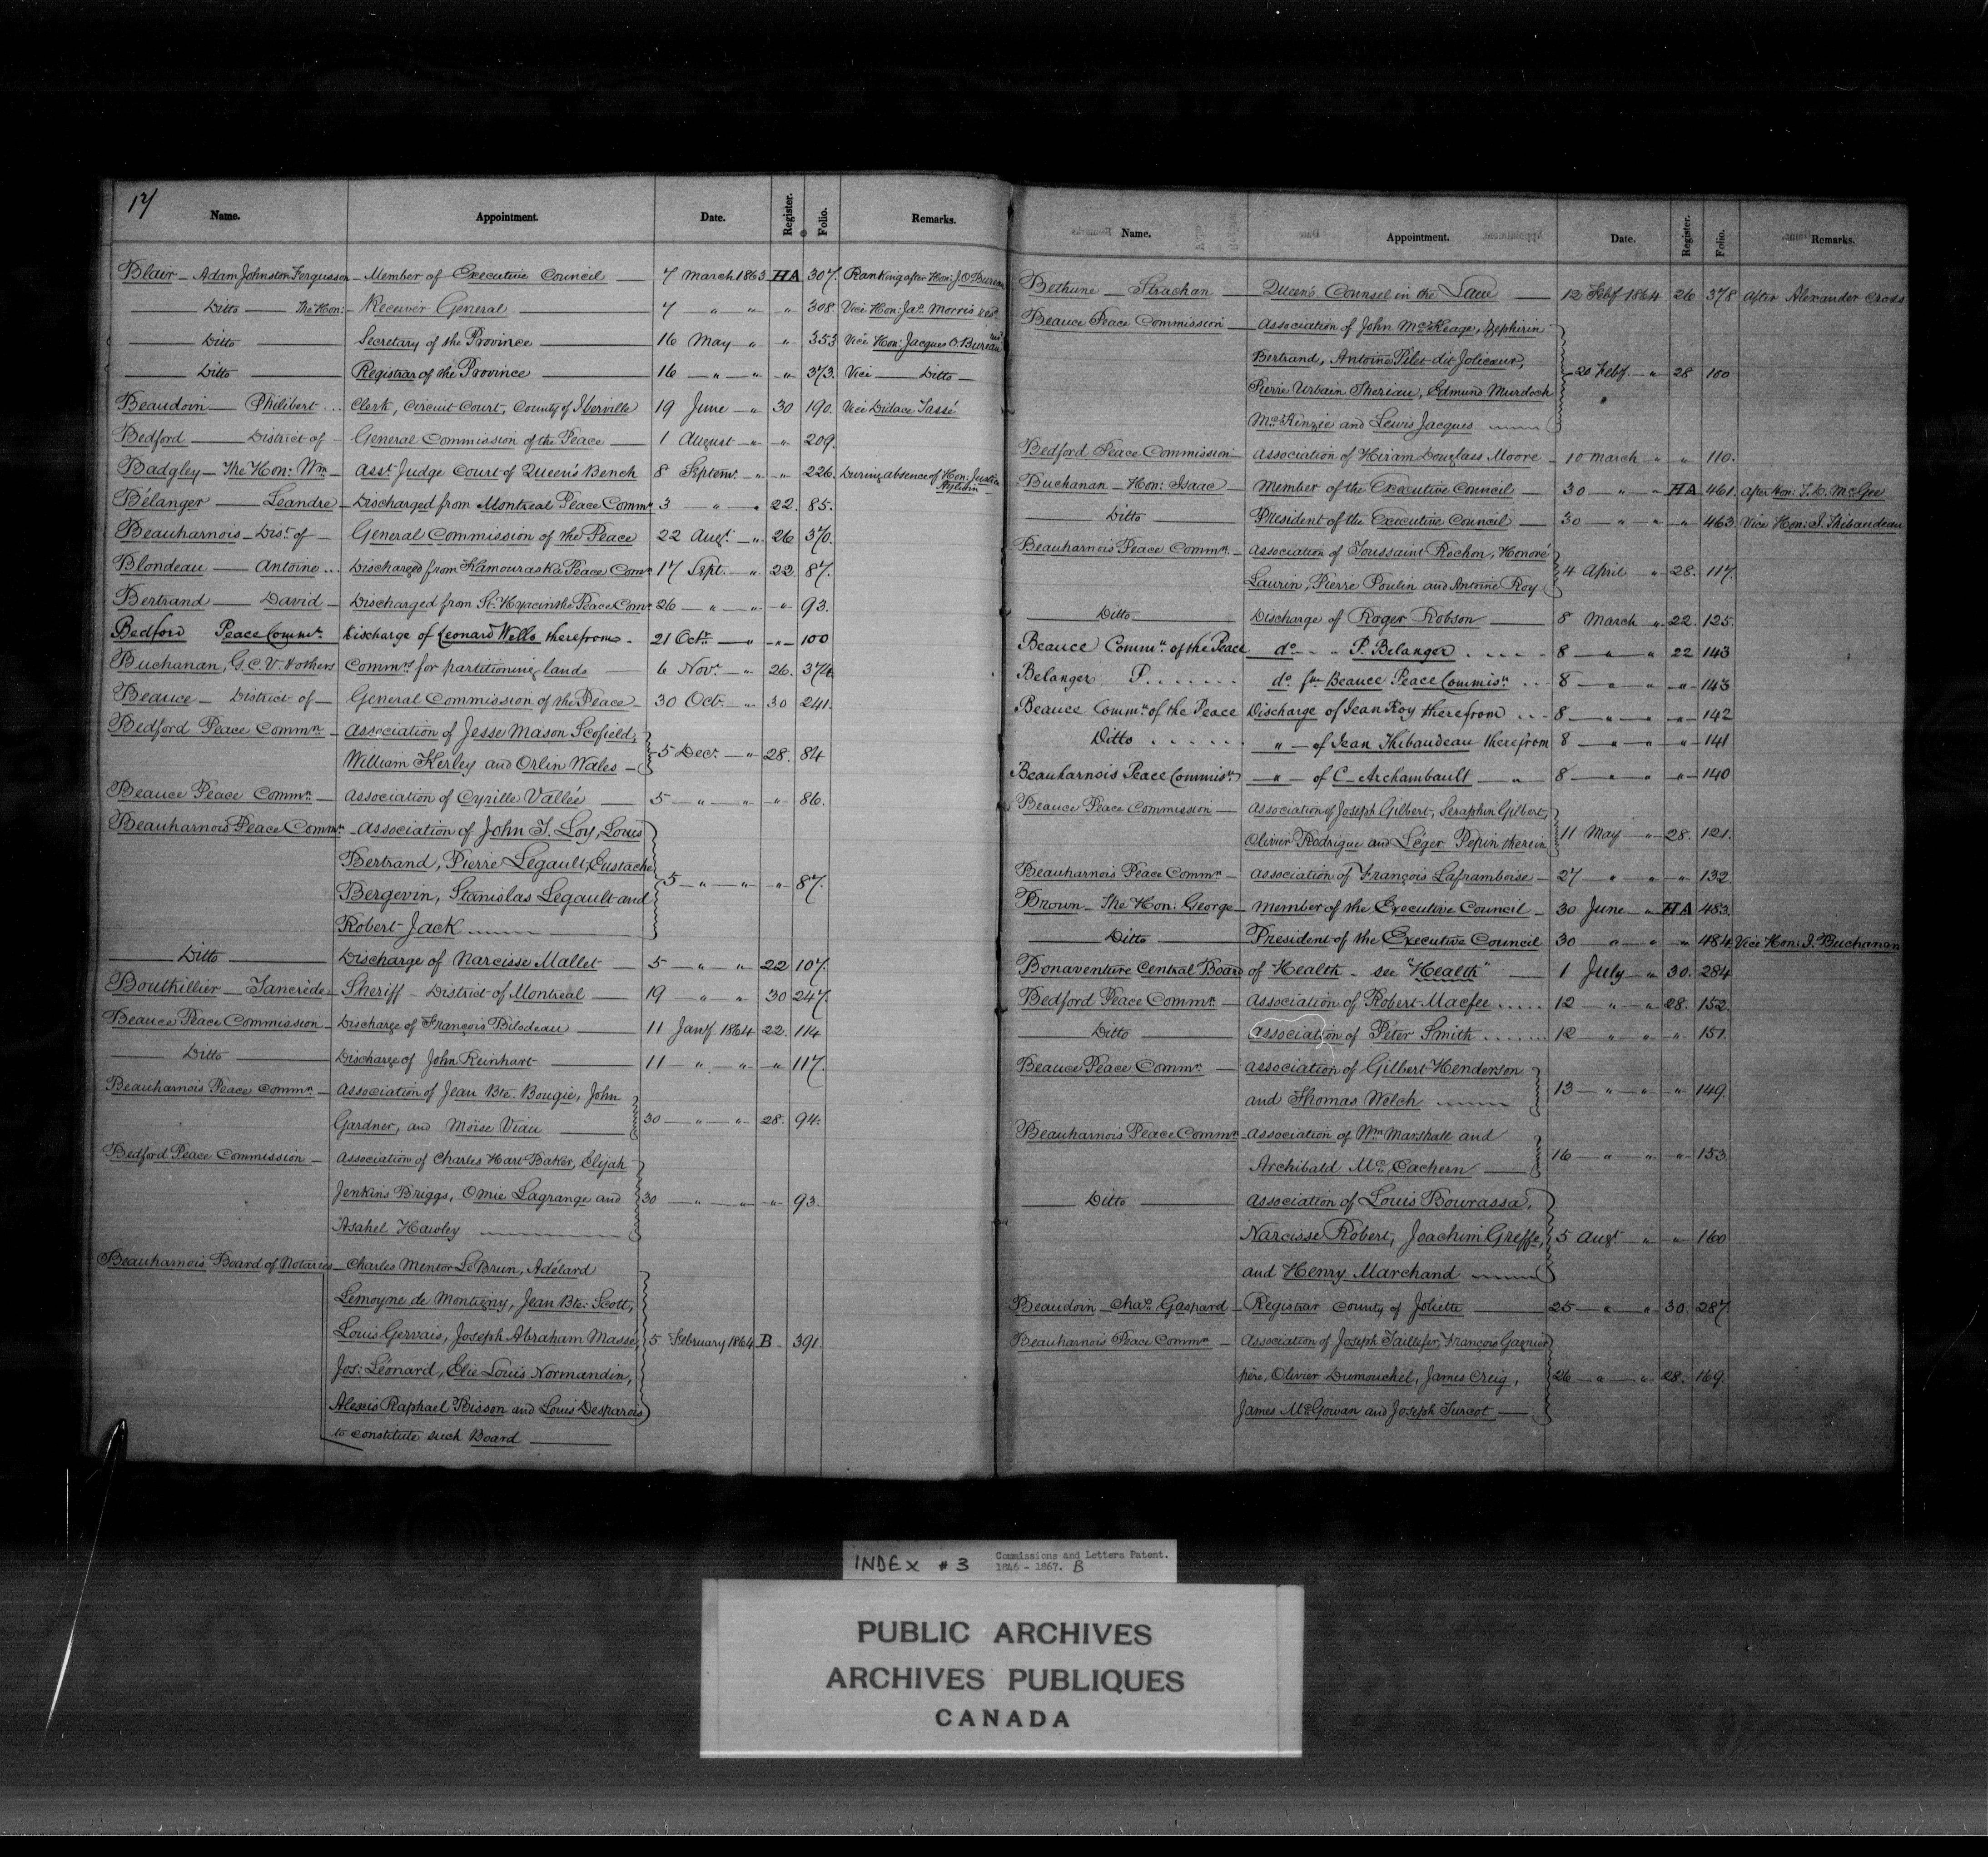 17
Name. Appointment. Date. Register. Folio. Remarks.
Blair - Adam Johnston Fergusson - Member of Executive Council - 7 March 1863 HA 307. Ranking after Hon: J. O. Bureau
Ditto - The Hon: - Receiver General - 7 " " " 308. Vice Hon: Jas. Morris res.
Ditto - Secretary of the Province - 16 May " " 353 Vice Hon: Jacques O. Bureau
Ditto - Registrar of the Province - 16 " " " 373. Vice - Ditto -
Beaudoin - Philibert ... Clerk, Circuit Court, County of Iberville 19 June " 30 190. Vice Didace Tassé
Bedford - District of - General Commission of the Peace - 1 August " " 209.
Badgley - The Hon: Wm - Asst. Judge Court of Queen's Bench 8 Septemr. " " 226. During absence of Hon: Justice
Aylwin
Bélanger - Leandre - Discharged from Montreal Peace Commn. 3 " " 22. 85.
Beauharnois - Dist. of - General Commission of the Peace 22 Augt. " 26 370.
Blondeau - Antoine ... Discharged from Kamouraska Peace Comn. 17 Sept. " 22. 87.
Bertrand - David - Discharged from St. Hyacinthe Peace Comn. 26 " " " 93.
Bedford Peace Commn. Discharge of Leonard Wells therefrom - 21 Octr. " " 100
Buchanan, G. C. V. & others Commrs for partitioning lands - 6 Novr. " 26. 374.
Beauce - District of - General Commission of the Peace - 30 Oct. " 30 241.
Bedford Peace Commn. - Association of Jesse Mason Scofield,
William Kerley and Orlin Wales - 5 Decr. " 28. 84
Beauce Peace Commn. - Association of Cyrille Vallée - 5 " " " 86.
Beauharnois Peace Commn. - Association of John T. Loy, Louis
Bertrand, Pierre Legault, Eustache
Bergevin, Stanislas Legault and 5 " " " 87.
Robert Jack
Ditto - Discharge of Narcisse Mallet - 5 " " 22 107.
Bouthillier - Tancrède - Sheriff - District of Montreal - 19 " " 30 247.
Beauce Peace Commission - Discharge of François Bilodeau - 11 Jany. 1864 22. 114
Ditto - Discharge of John Reinhart - 11 " " " 117.
Beauharnois Peace Commn. - Association of Jean Bte. Bougie, John
Gardner, and Moïse Viau - 30 " " 28. 94.
Bedford Peace Commission - Association of Charles Hart Baker, Elijah
Jenkins Briggs, Omie Lagrange and 30 " " " 93.
Asahel Hawley
Beauharnois Board of Notaries - Charles Mentor LeBrun, Adélard
Lemoyne de Montigny, Jean Bte. Scott,
Louis Gervais, Joseph Abraham Masse, 5 February 1864 B - 391.
Jos: Léonard, Elie Louis Normandin,
Alexis Raphael Bisson and Louis Desparois
to constitute such Board
Name. Appointment. Date. Register. Folio. Remarks.
Bethune - Strachan - Queen's Counsel in the Law - 12 Feby. 1864 26 378 After Alexander Cross
Beauce Peace Commission - Association of John McKeage, Zephirin
Bertrand, Antoine Pilet dit Jolicœur, 20 Feby. " 28 100
Pierre Urbain Theriau, Edmund Murdoch
McKenzie and Lewis Jacques
Bedford Peace Commission - Association of Hiram Douglass Moore - 10 March " " 110.
Buchanan - Hon: Isaac - Member of the Executive Council - 30 " " HA 461. After Hon: T. D. McGee
Ditto - President of the Executive Council - 30 " " " 463. Vice Hon: I. Thibaudeau
Beauharnois Peace Commn. - Association of Toussaint Rochon, Honoré
Laurin, Pierre Poulin and Antoine Roy 4 April " 28. 117.
Ditto - Discharge of Roger Robson - 8 March " 22. 125.
Beauce Commn. of the Peace do. - - P. Belanger . . . . 8 " " 22 143
Belanger P. . . . . . . do. fm Beauce Peace Commisn. . . 8 " " " 143
Beauce Commn. of the Peace Discharge of Jean Roy therefrom . . 8 " " " 142
Ditto . . . . . . " - of Jean Thibaudeau therefrom 8 " " " 141
Beauharnois Peace Commisn. " - of C. Archambault - " 8 " " " 140
Beauce Peace Commission - Association of Joseph Gilbert, Seraphin Gilbert,
Olivier Rodrigue and Léger Pepin therein 11 May " 28. 121.
Beauharnois Peace Commn. - Association of François Laframboise - 27 " " " 132.
Brown - The Hon: George - Member of the Executive Council - 30 June " HA 483.
Ditto - President of the Executive Council 30 " " " 484. Vice Hon: I. Buchanan
Bonaventure Central Board of Health - see "Health" - 1 July " 30. 284
Bedford Peace Commn. - Association of Robert Macfee . . . . 12 " " 28. 152.
Ditto - Association of Peter Smith . . . . . . 12 " " " 151.
Beauce Peace Commn. - Association of Gilbert Henderson
and Thomas Welch 13 " " " 149.
Beauharnois Peace Commn. - Association of Wm. Marshall and
Archibald McEachern - 16 " " " 153
Ditto - Association of Louis Bourassa,
Narcisse Robert, Joachim Greffe, 5 Augt. " " 160
and Henry Marchand
Beaudoin - Chas. Gaspard - Registrar County of Joliette - 25 " " 30. 287.
Beauharnois Peace Commn. - Association of Joseph Taillefer, François Gagnier
père, Olivier Dumouchel, James Creig, 26 " " 28. 169.
James McGowan and Joseph Turcot
INDEX # 3 Commissions and Letters Patent.
1846 - 1867. B
PUBLIC ARCHIVES
ARCHIVES PUBLIQUES
CANADA